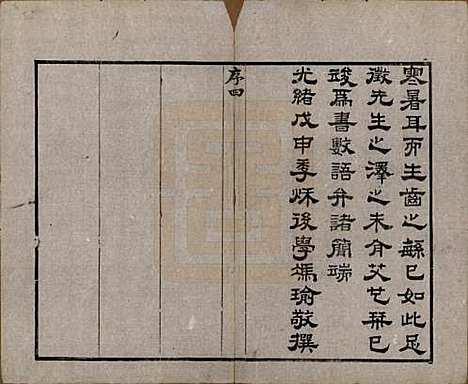 寒暑耳而生齒之緐已如此足
徵先生之澤之未有艾也栞已
竣爲書數語弁諸簡端
光緒戊申季秌後學馮瑜敬撰
序四